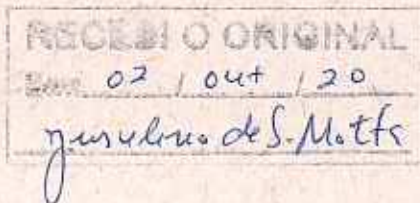 RECEBI O ORIGINAL
Em 02 / out / 20
de S. Motta